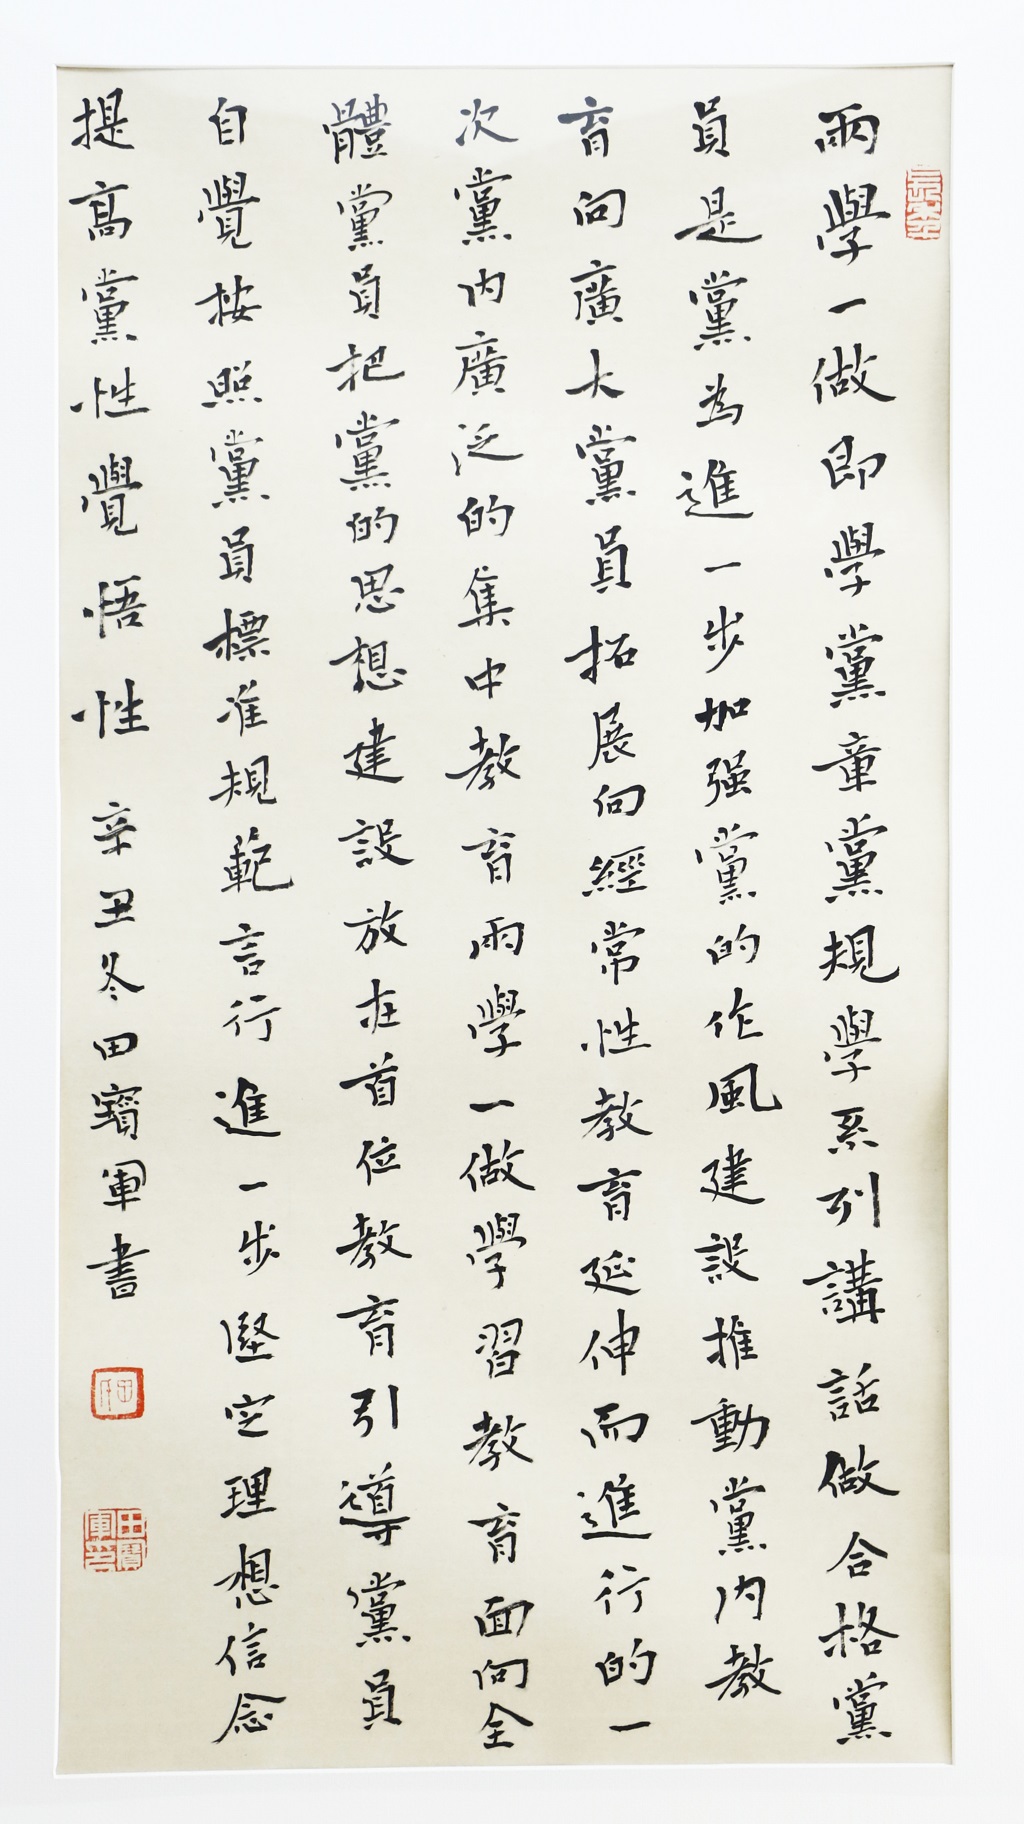 兩學一做即學黨章黨規學系列講話做合格黨
員是黨為進一步加强黨的作風建設推動黨内教
育向廣大黨員拓展向經常性教育延伸而進行的一
次黨内廣泛的集中教育兩學一做學習教育面向全
體黨員把黨的思想建設放在首位教育引導黨員
自覺按照黨員標准規範言行進一步堅定理想信念
提高黨性覺悟性 辛丑冬田寶軍書
田寶軍印